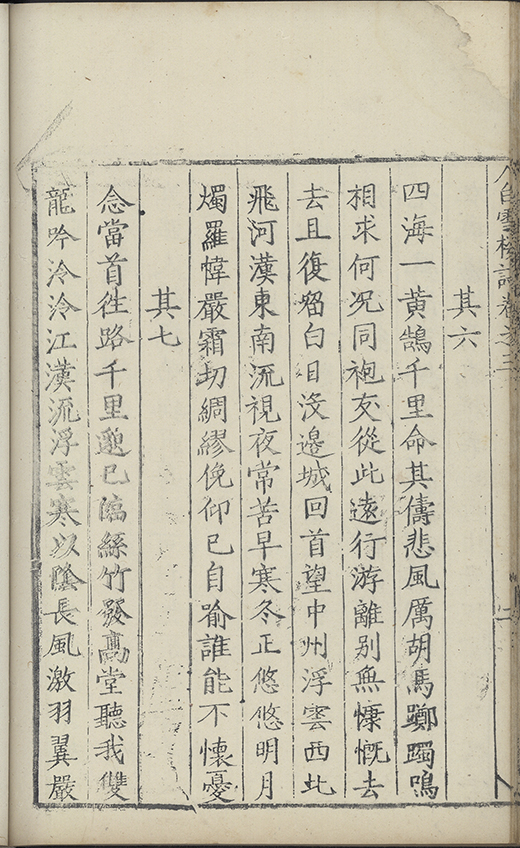 白雲樓詩卷之三
其六
四海一黃鵠千里命其儔悲風厲胡馬躑躅鳴
相求何况同袍友從此遠行游離别無慷慨去
去且復留白日沒邊城回首望中州浮雲西北
飛河漢東南流視夜常苦早寒冬正悠悠明月
燭羅幃嚴霜切綢繆俛仰已自喻誰能不懷憂
其七
念當首徃路千里邈已絲竹發髙堂聽我雙
龍吟泠泠江漢流浮雲寒以陰長風激羽翼嚴